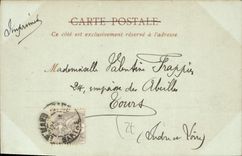 CARTE POSTALE
Ce côté est exclusivement réservé à l'adresse.
Imprimé
Mademoiselle Valentine Frappier
24, impasse des Abeilles
Tours
(Indre et Loire)